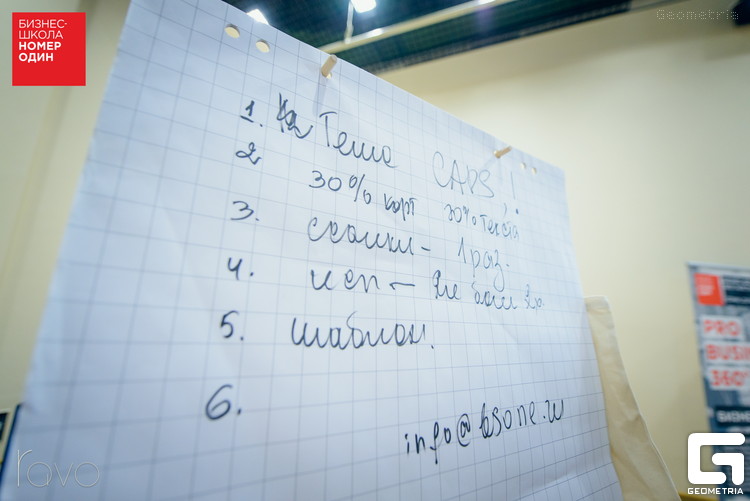 БИЗНЕС-
ШКОЛА
НОМЕР
ОДИН
Geometria
1. Тема CAPS!!
2 30% карт 70% текста
3. ссылки - 1 раз.
4.
5. шаблон.
6.
info@bsone.ru
PRO
BUSI
360°
БИЗНЕ
ravo
G
GEOMETRIA